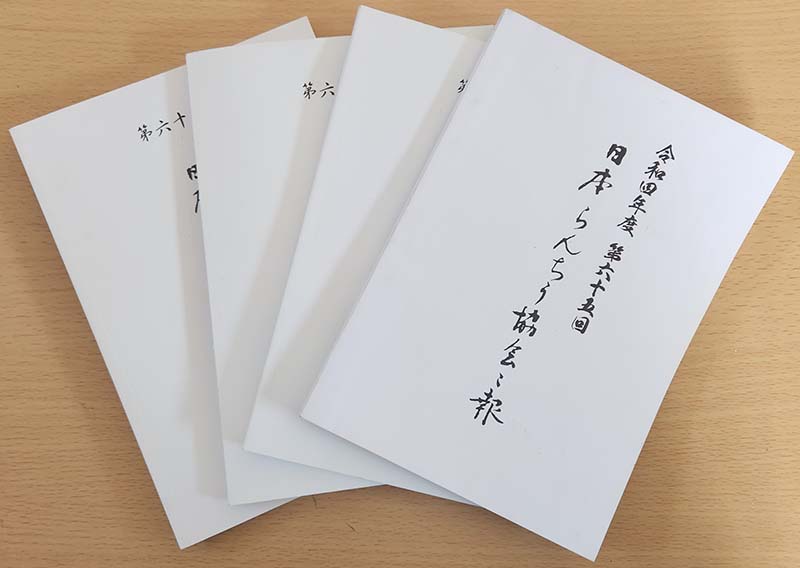 令和四年度 第六十五回
日本らんちう協会ミ報
第六
第六十
日